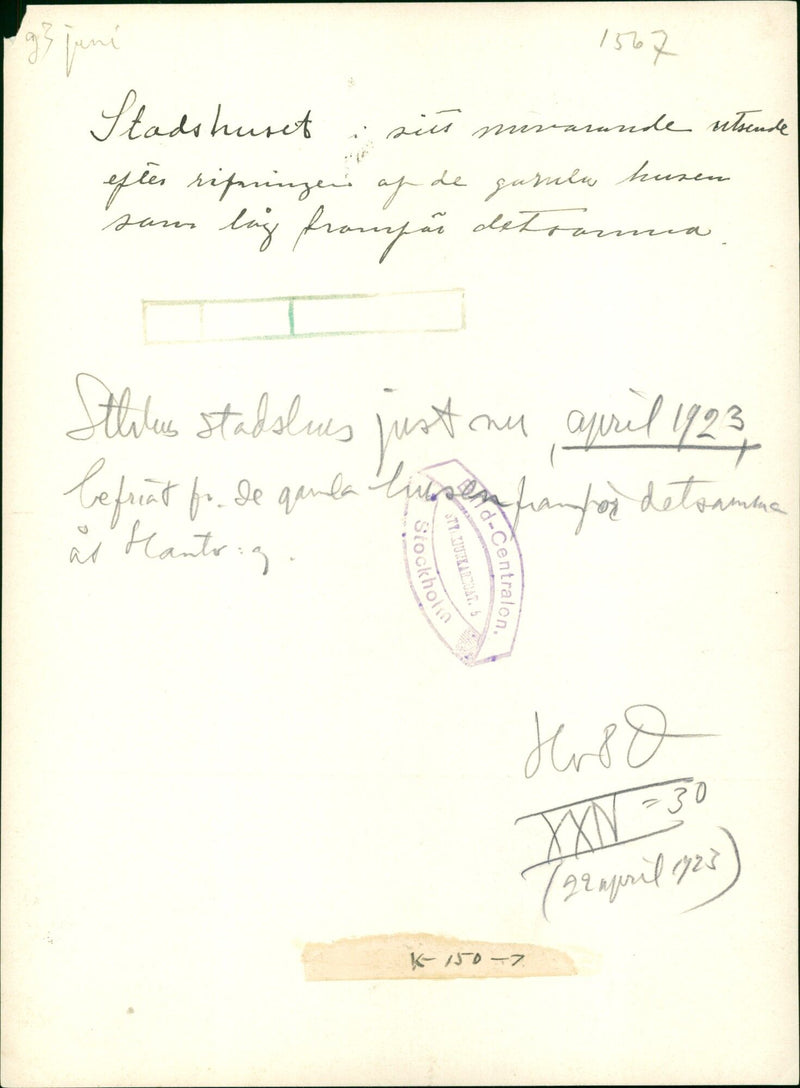 g3 juni
1567
Stadshuset i sitt nuvarande utseende
efter rifningen af de gamla husen
som låg framför detsamma.
Sthlms stadshus just nu, april 1923,
befriat fr. de gamla husen framför detsamma
åt Hantv: g.
Bild-Centralen.
Stockholm
HvBD
XXIV = 30
(22 april 1923)
K-150-7